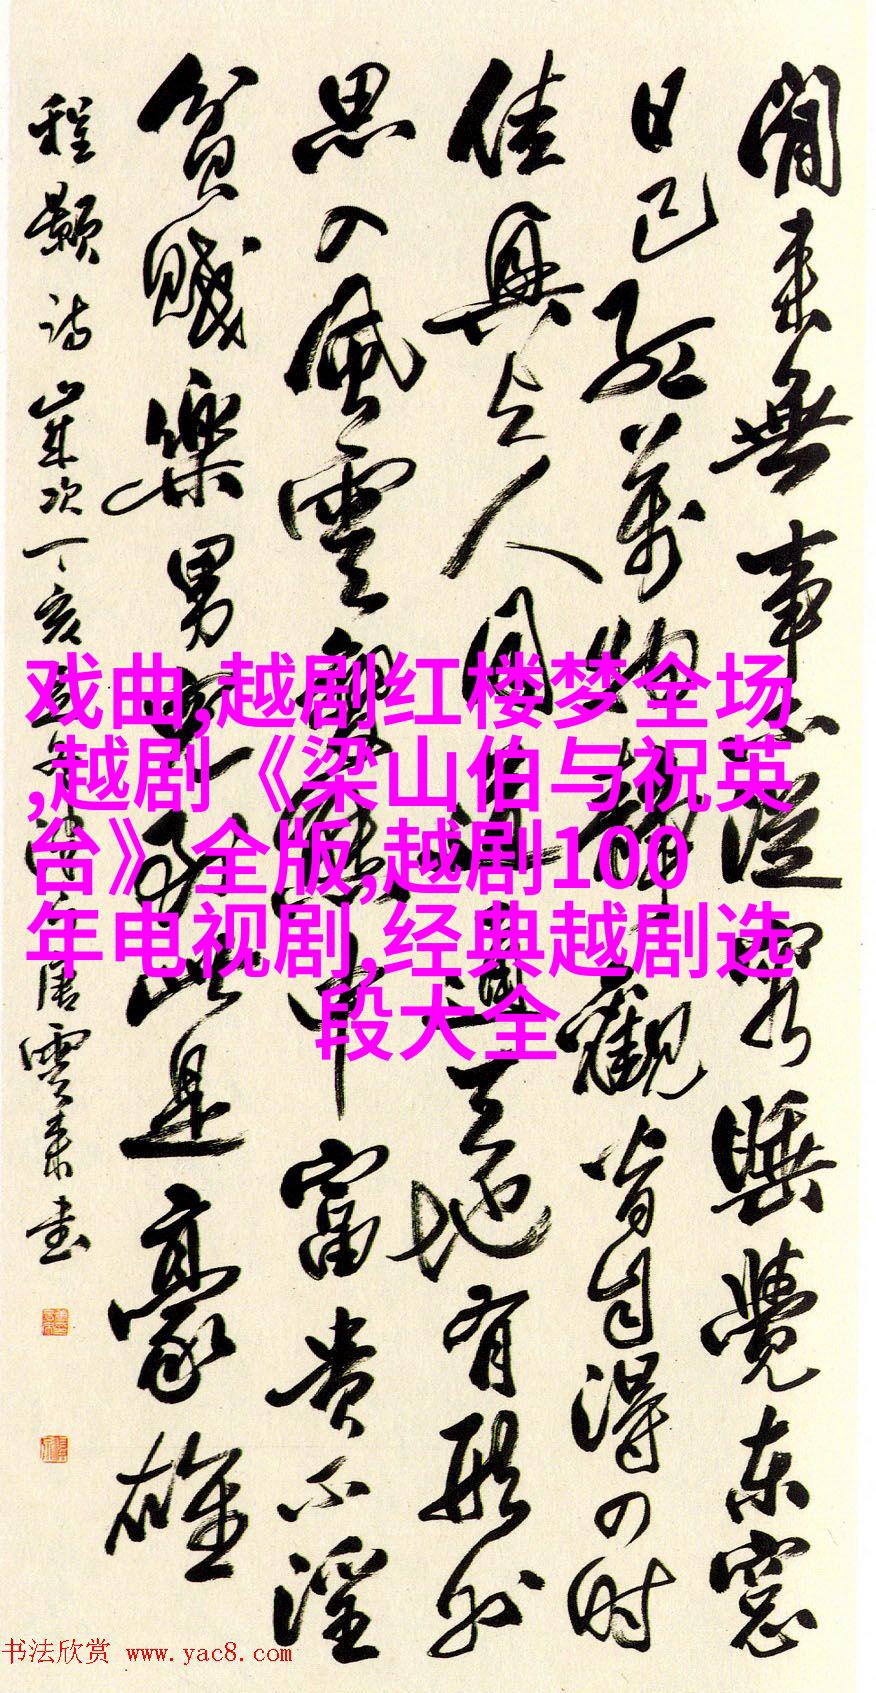 閒来無事不從容睡覺東窓
日已紅萬物静觀皆自得四时
佳興与人同道通天地有形外
思入風雲變態中富贵不淫
貧賤樂男兒到此是豪雄
程颢诗歲次丁亥唐雲来书
戏曲,越剧红楼梦全场
,越剧《梁山伯与祝英
台》全版,越剧100
年电视剧,经典越剧选
段大全
书法欣赏 www.yac8.com